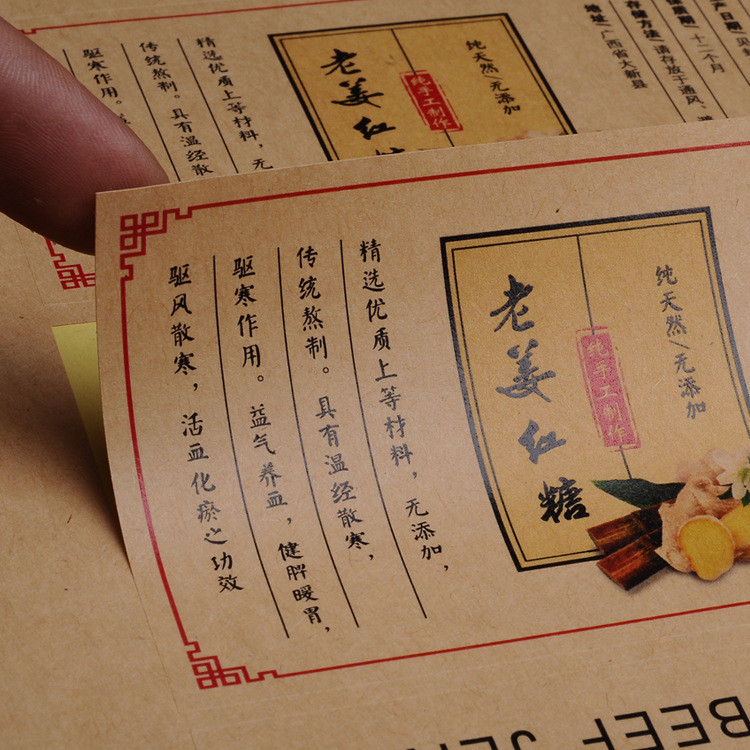 产日期:见
质期:十二个月
存储方法:请存放于通风、
地址:广西省大新县
纯天然/无添加
纯手工制作
老姜红糖
精选优质上等材料,无
传统熬制。具有温经散
驱寒作用。
纯天然/无添加
纯手工制作
老姜红糖
精选优质上等材料,无添加,
传统熬制。具有温经散寒,
驱寒作用。益气养血,健脾暖胃,
驱风散寒,活血化瘀之功效
BEEF JE